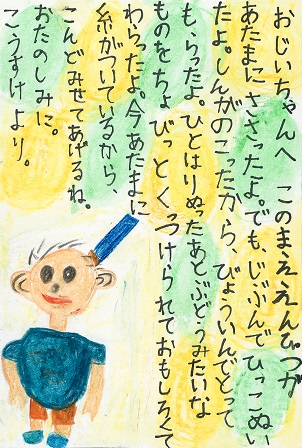 おじいちゃんへ このまええんぴつが
あたまにささったよ。でも、じぶんでひっこぬい
たよ。しんがのこったから、びょういんでとって
もらったよ。ひとはりぬったあとぶどうみたいな
ものをちょびっとくっつけられておもしろくて
わらったよ。今あたまに
糸がついているから、
こんどみせてあげるね。
おたのしみに。
こうすけより。